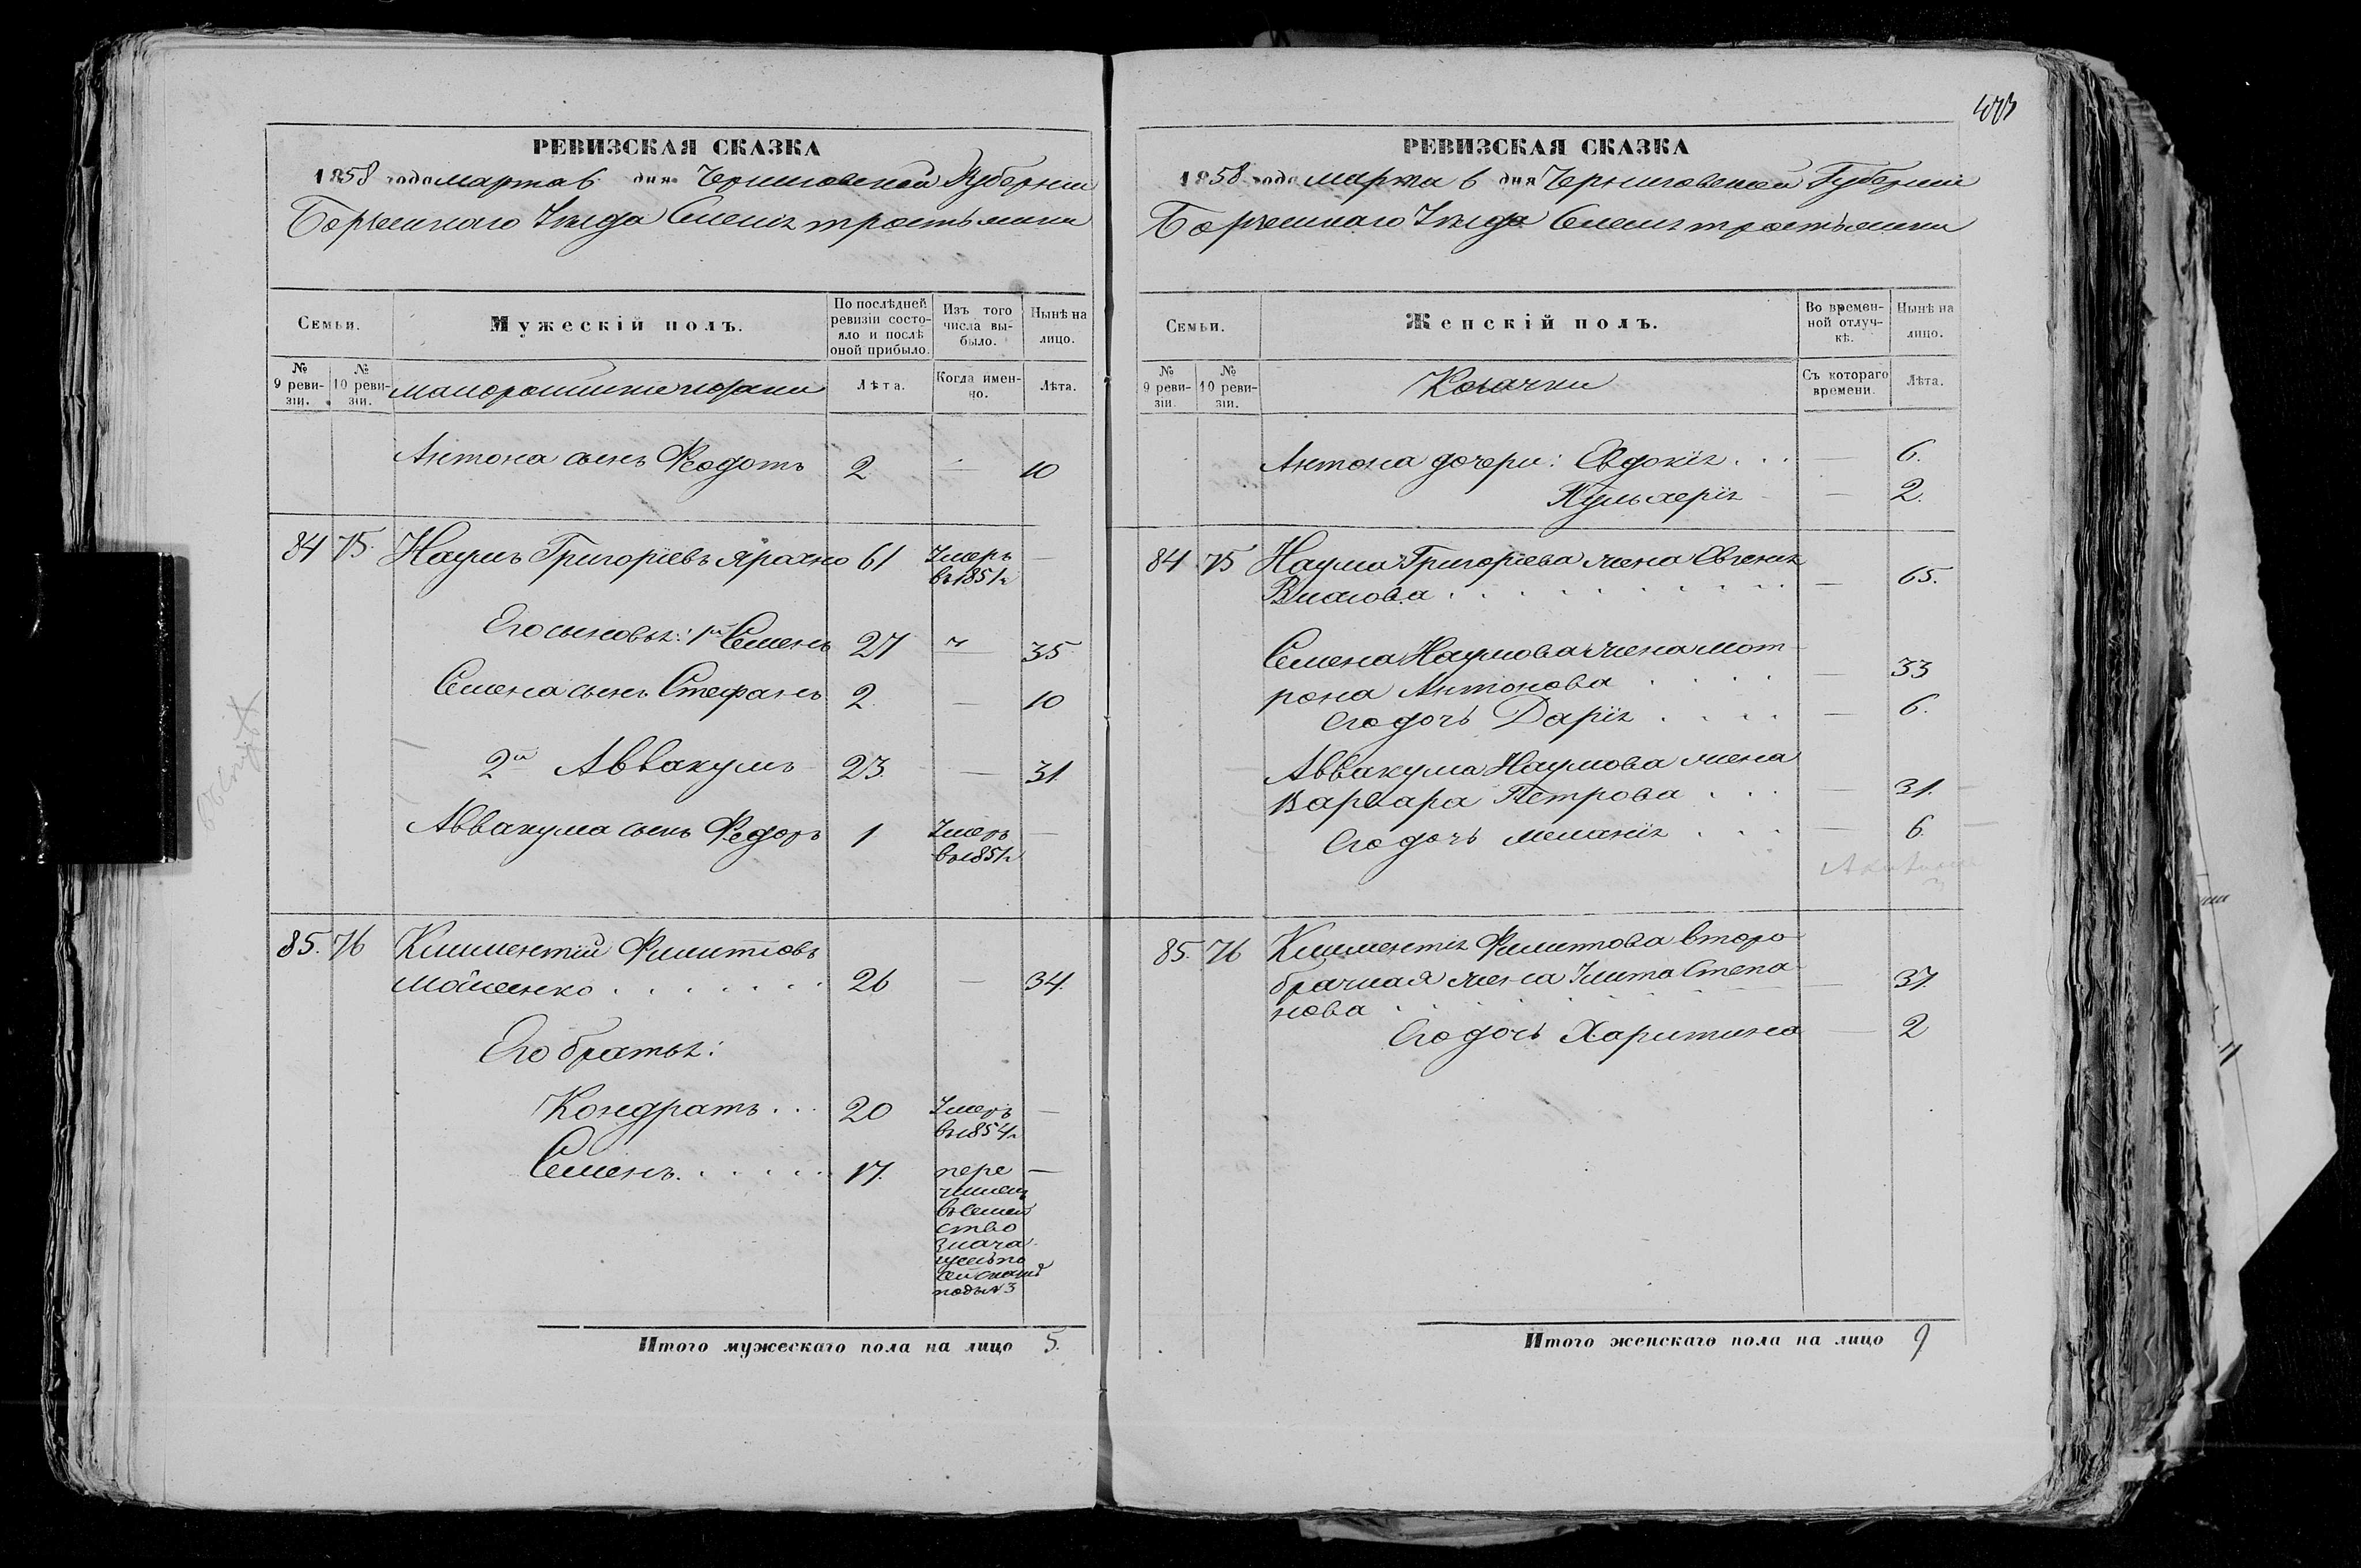 РЕВИЗСКАЯ СКАЗКА
1858 года марта 6 дня Черниговской Губернии
Борзенскаго Уѣзда Села Тростянки
Семьи.
Мужескій полъ.
По послѣдней ревизіи состояло и послѣ оной прибыло.
Изъ того числа выбыло.
Нынѣ на лицо.
№ 9 ревизіи.
№ 10 ревизіи.
малороссийские козаки
Лѣта.
Когда именно.
Лѣта.
Антона сынъ Феодотъ 2 — 10
84 75. Наумъ Григоріевъ Ярохно 61 Умеръ —
въ 1851 г
Его сыновья: 1й Семенъ 27 — 35
Семена сынъ Стефанъ 2. — 10
2й Аввакумъ 23. — 31
Аввакума сынъ Федоръ 1 Умеръ —
въ 1851 г
85. 76 Климентій Филиповъ
Мойсенко . . . . . . . 26 — 34.
Его братья:
Кондратъ . . . 20 Умеръ —
въ 1854 г
Семенъ . . . . . 17. пере —
численъ
въ семей
ство
знача
щеесь по
сей сказкѣ
подъ № 3
Итого мужескаго пола на лицо 5.
473
РЕВИЗСКАЯ СКАЗКА
1858 года марта 6 дня Черниговской Губернии
Борзенскаго Уѣзда Села Тростянки
Семьи.
Женскій полъ.
Во временной отлучкѣ.
Нынѣ на лицо.
№ 9 ревизіи.
№ 10 ревизіи.
Козачки
Съ котораго времени.
Лѣта.
Антона дочери: Евдокія . . . — 6.
Пульхерія — 2.
84 75 Наума Григоріева жена Евгенія
Власова . . . . . . . . . . — 65.
Семена Наумова жена Мот
рона Антонова . . . . — 33
Его дочь Дарія . . . . — 6.
Аввакума Наумова жена
Варвара Петрова . . . — 31.
Его дочь Меланія . . . — 6.
85. 76 Климентія Филипова второ
брачная жена Улита Степа
нова — 37.
Его дочь Харитина — 2
Итого женскаго пола на лицо 9